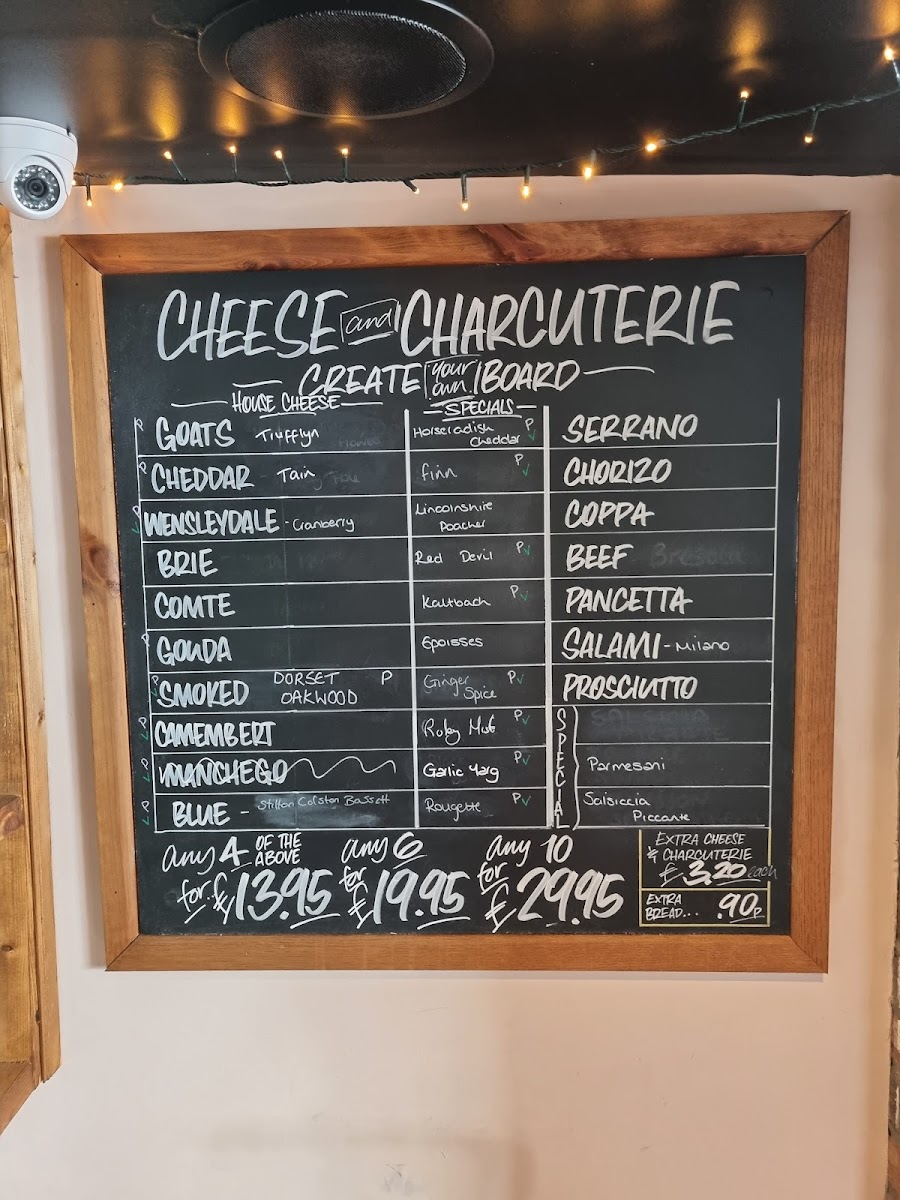 CHEESE and CHARCUTERIE
CREATE your own BOARD
HOUSE CHEESE
P GOATS Trufflyn
P CHEDDAR Tain
P WENSLEYDALE - Cranberry
BRIE
COMTE
P GOUDA
P SMOKED DORSET OAKWOOD P
P CAMEMBERT
P MANCHEGO
P BLUE - Stilton Colston Bassett
SPECIALS
Horseradish P
Cheddar
Finn P
Lincolnshire
Poacher
Red Devil P
Kaltbach P
Epoisses
Ginger P
Spice
Ruby Mist P
Garlic Yarg P
Rougette P
SERRANO
CHORIZO
COPPA
BEEF Bresaola
PANCETTA
SALAMI - Milano
PROSCIUTTO
SPECIAL
Parmesani
Salsiccia
Piccante
any 4 OF THE ABOVE
for £13.95
any 6
for £19.95
any 10
for £29.95
EXTRA CHEESE
& CHARCUTERIE
£3.20 each
EXTRA
BREAD... .90p